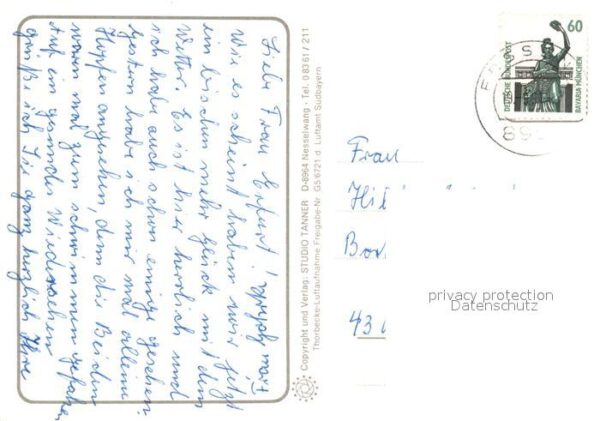 Liebe Frau Erfurt!
Wie es scheint haben wir jetzt
ein bischen mehr Glück mit dem
Wetter. Es ist hier herrlich und
ich habe auch schon einiges gesehen.
Gestern habe ich mir mal alleine
Hopfen angesehen, denn die Beiden
waren mal zum schwimmen gefahren
Auf ein gesundes Wiedersehen
grüß ich Sie ganz herzlich Ihre
Copyright und Verlag: STUDIO TANNER D-8964 Nesselwang · Tel. 0 83 61 / 211
Thorbecke-Luftaufnahme Freigabe-Nr. GS 6721 d. Luftamt Südbayern
60
DEUTSCHE BUNDESPOST
BAVARIA MÜNCHEN
Frau
Hil
Bor
43
privacy protection
Datenschutz